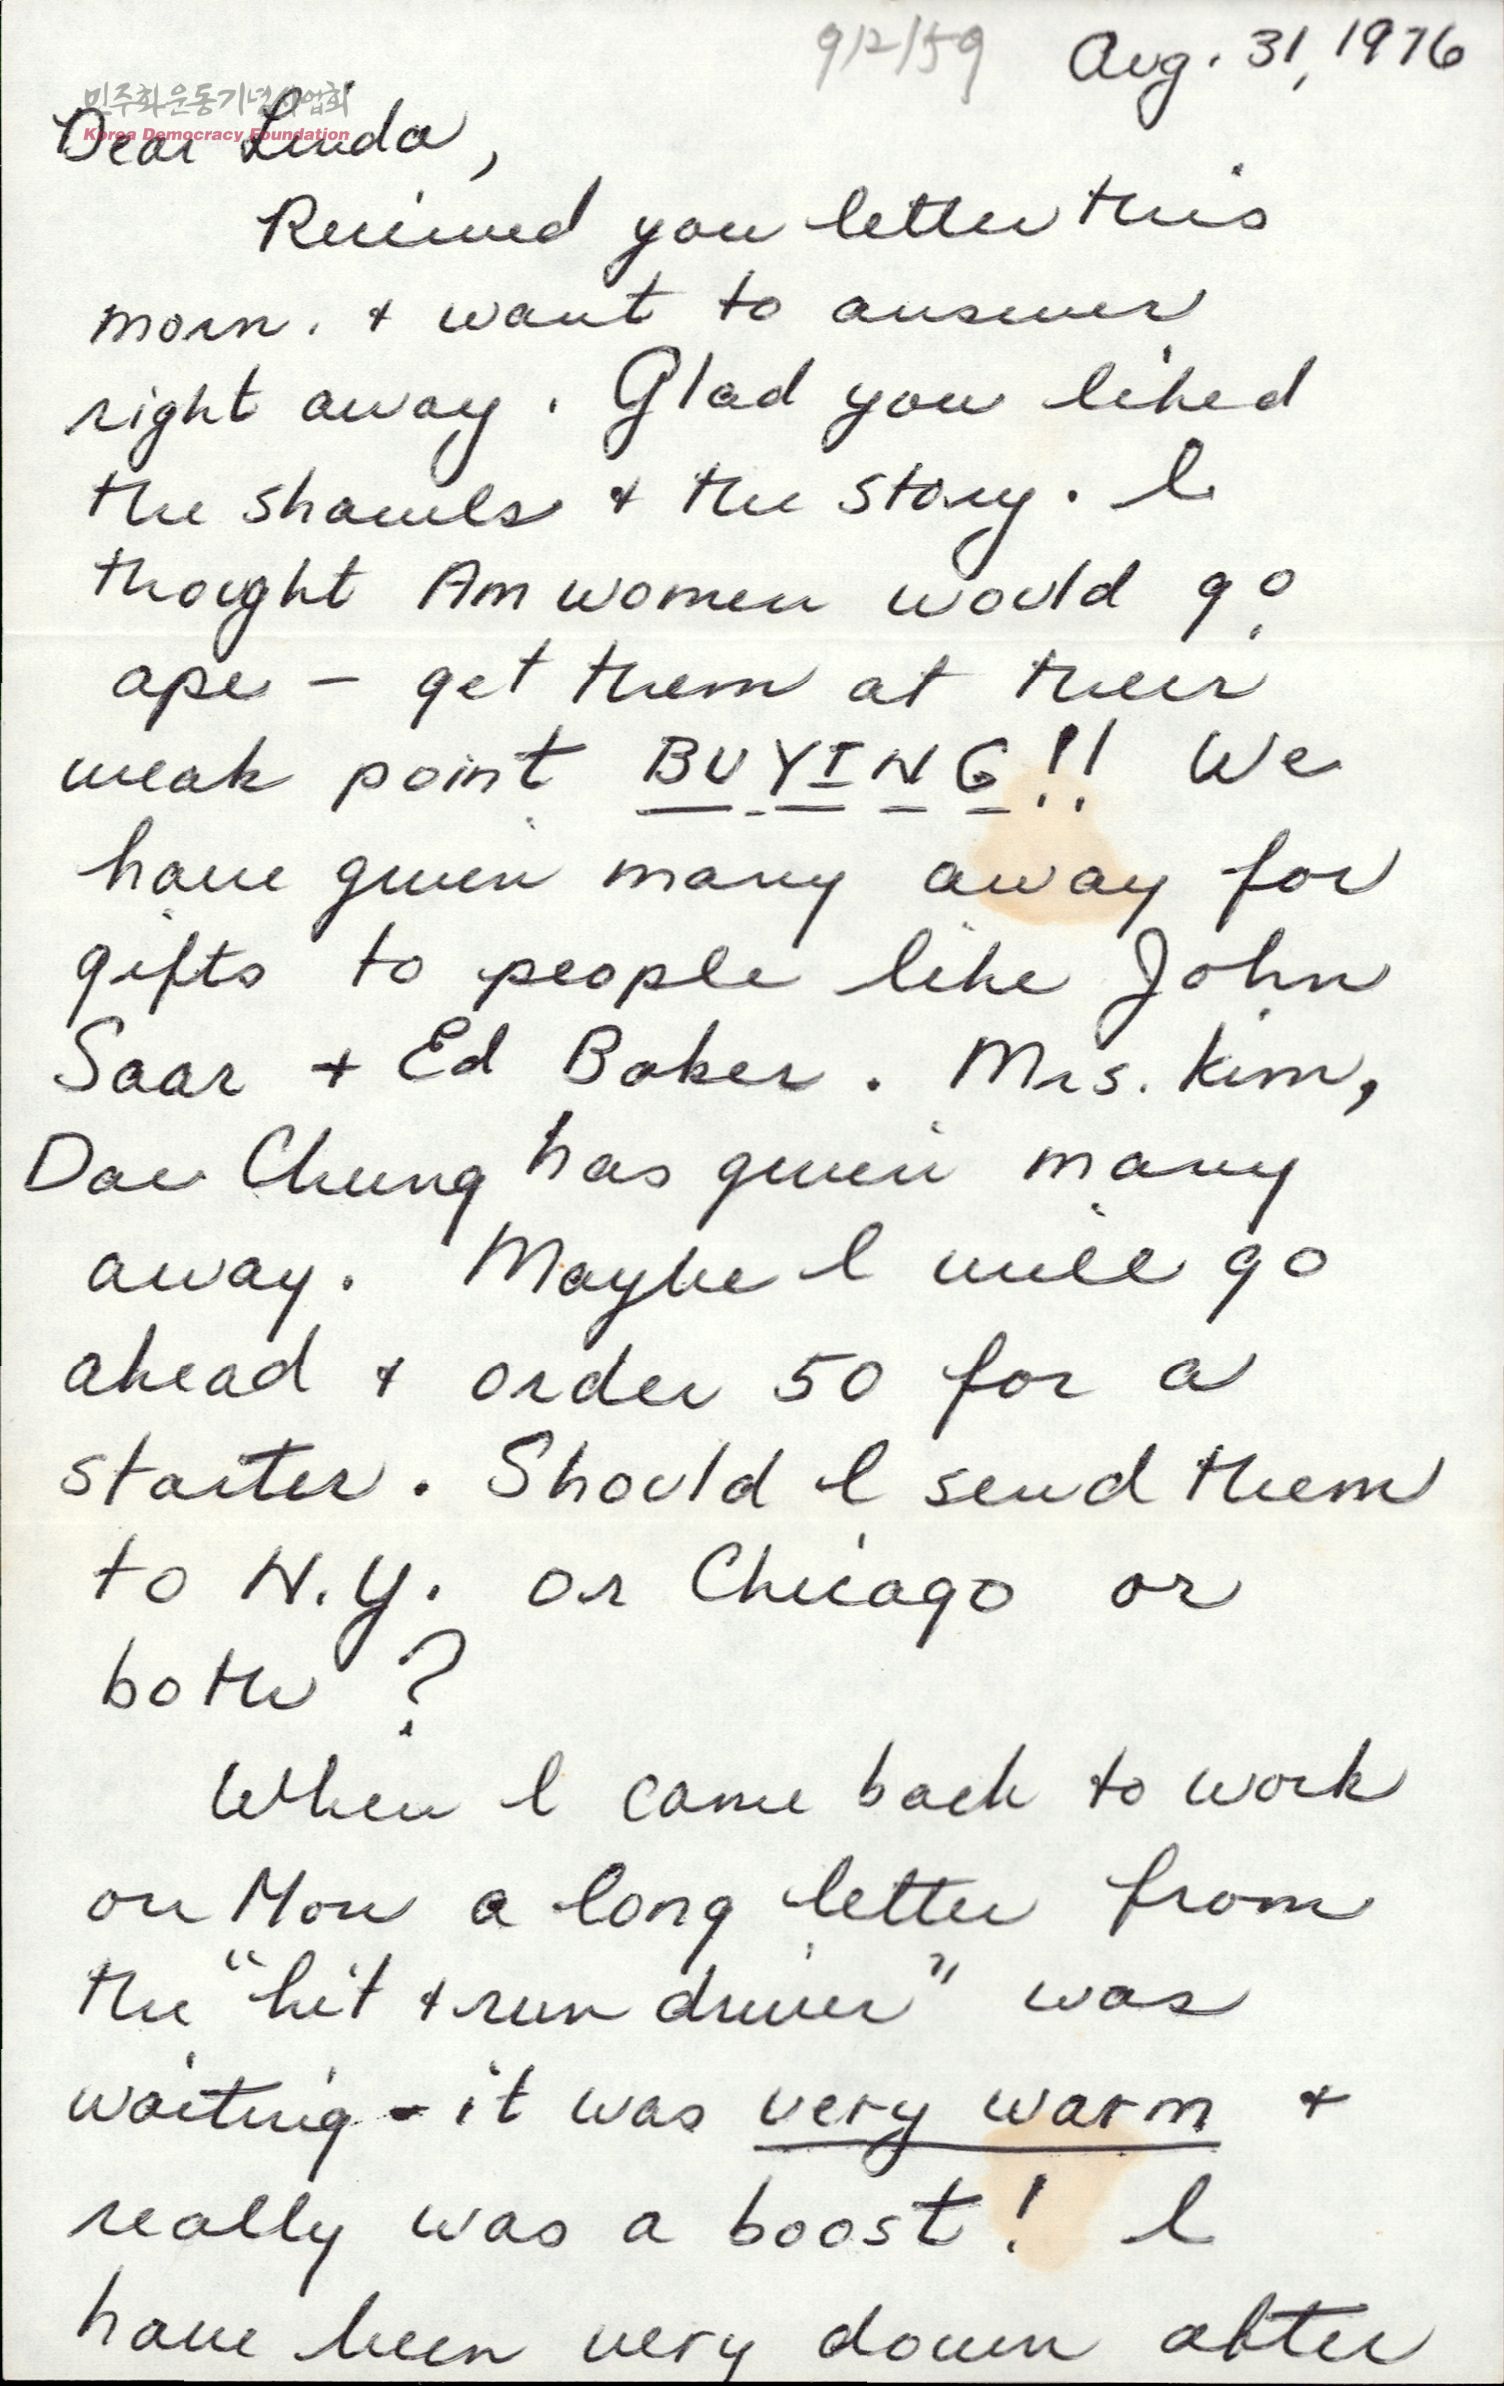 912159 Aug. 31, 1976
민주화운동기념사업회
Korea Democracy Foundation
Dear Linda,
Received you letter this
morn. + want to answer
right away. Glad you liked
the shawls + the story. I
thought Am women would go
ape - get them at their
weak point BUYING!! We
have given many away for
gifts to people like John
Saar + Ed Baker. Mrs. Kim,
Dae Chung has given many
away. Maybe I will go
ahead + order 50 for a
starter. Should I send them
to N.Y. or Chicago or
both?
When I came back to work
on Mon a long letter from
the "hit + run driver" was
waiting - it was very warm +
really was a boost! I
have been very down after